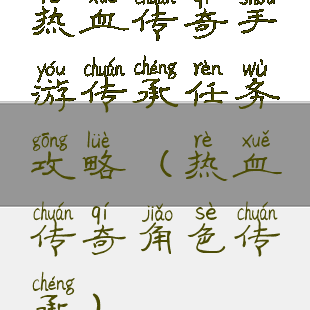 rè xuè chuán qí shǒu
热血传奇手
yóu chuán chéng rèn wù
游传承任务
gōng lüè rè xuě
攻略（热血
chuán qí jiǎo sè chuán
传奇角色传
chéng
承）